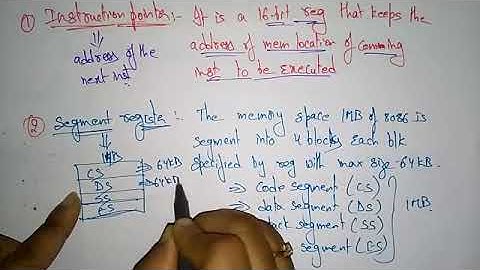 ① Instruction pointer :- It is a 16-bit reg that keeps the
address of mem location of comming
inst to be executed
address of the
next inst
② Segment register :- The memory space 1MB of 8086 is
segment into 4 blocks each blk
specified by reg with max size - 64KB.
1MB
CS
DS
SS
ES
64KB
64KB
→ Code segment (CS)
→ data segment (DS)
stack segment (SS)
segment (ES)
1MB